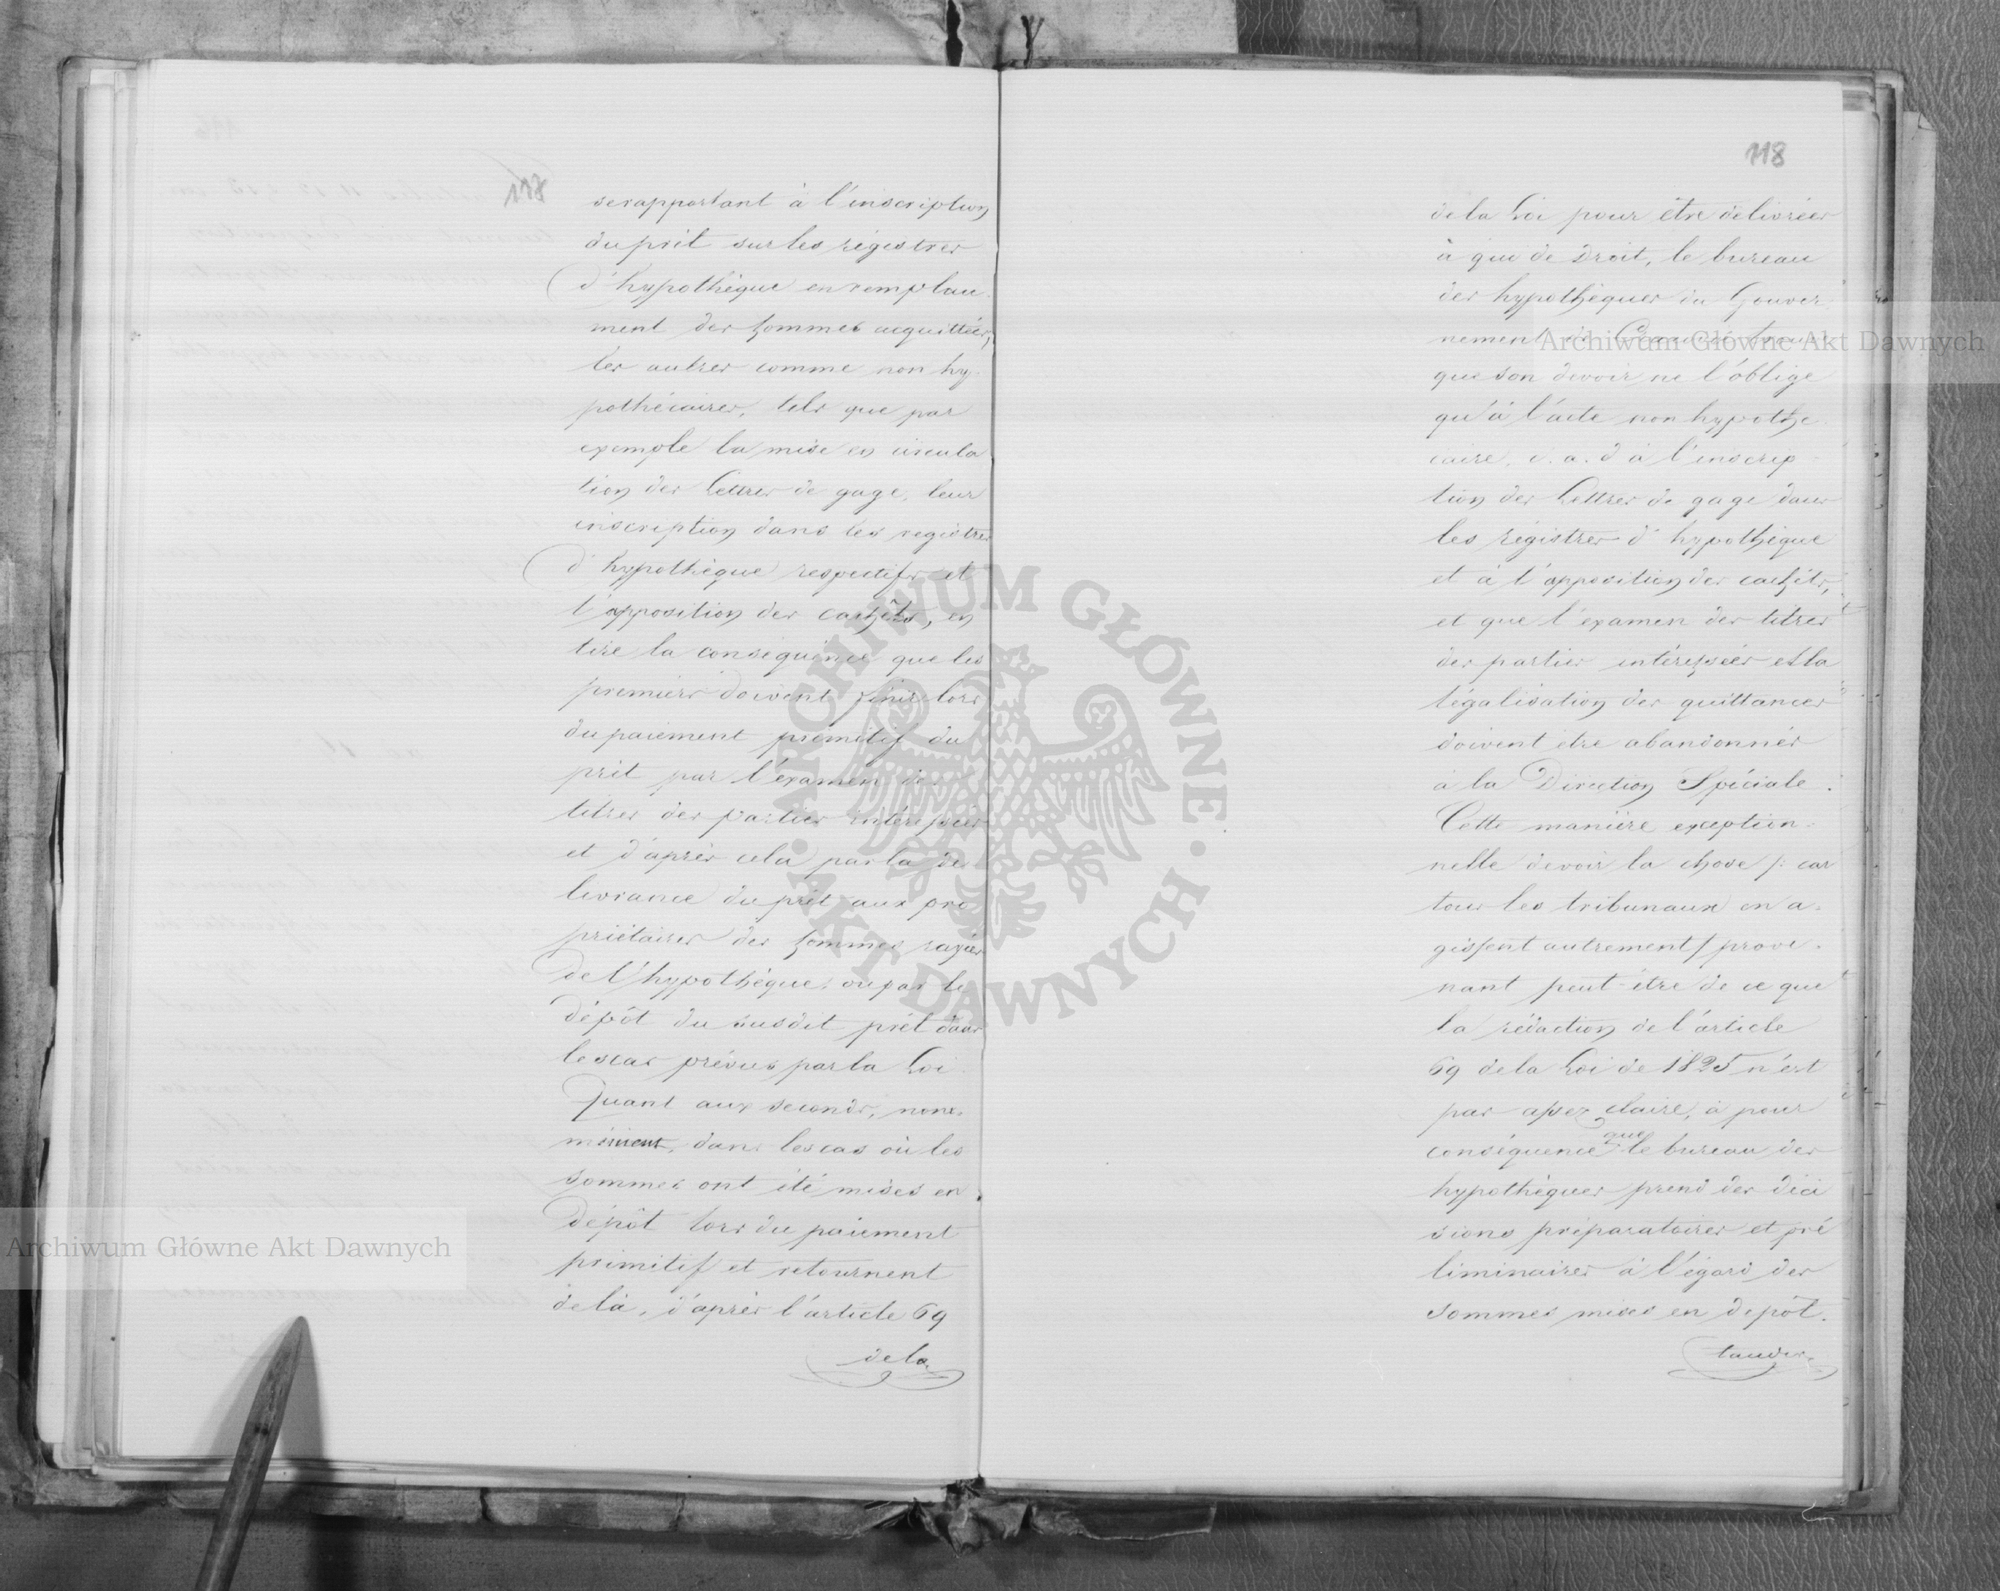 118
se rapportant à l'inscription
du prêt sur les régistres
d'hypothèque en remplace
ment des sommes acquittées,
les autres comme non hy-
pothécaires, tels que par
exemple la mise en circula
tion des lettres de gage, leur
inscription dans les registres
d'hypothèque respectifs et
l'apposition des cachêts, en
tire la conséquence que les
premiers doivent finir lors
du paiement primitif du
prêt par l'examen des
titres des parties intéressées
et d'après cela par la dé
livrance du prêt aux pro
priétaires des sommes rayées
de l'hypothèque, ou par le
dépôt du susdit prêt dans
les cas prévus par la Loi
Quant aux seconds, nom-
mément, dans les cas où les
sommes ont été mises en
Dépôt lors du paiement
primitif et retournent
de là, d'après l'article 69
de la
118
de la Loi pour être délivrées
à qui de Droit, le bureau
des hypothèques du Gouver
nement de
que son devoir ne l'oblige
qu'à l'acte non hypothé
caire, c. a. d à l'inscrip-
tion des Lettres de gage dans
les régistres d'hypothèque
et à l'apposition des cachêts,
et que l'examen des titres
des parties intéressées et la
légalisation des quittances
doivent être abandonnés
à la Direction Spéciale.
Cette manière exception-
nelle de voir la chose /: car
tous les tribunaux en a-
gissent autrement / prove-
nant peut-être de ce que
la rédaction de l'article
69 de la Loi de 1825 n'est
pas assez claire, à pour
conséquence que le bureau des
hypothèques prend des déci
sions préparatoires et pré
liminaires à l'égard des
sommes mises en dépôt.
tandis
Archiwum Główne Akt Dawnych
Archiwum Główne Akt Dawnych
ARCHIWUM GŁÓWNE · AKT DAWNYCH ·